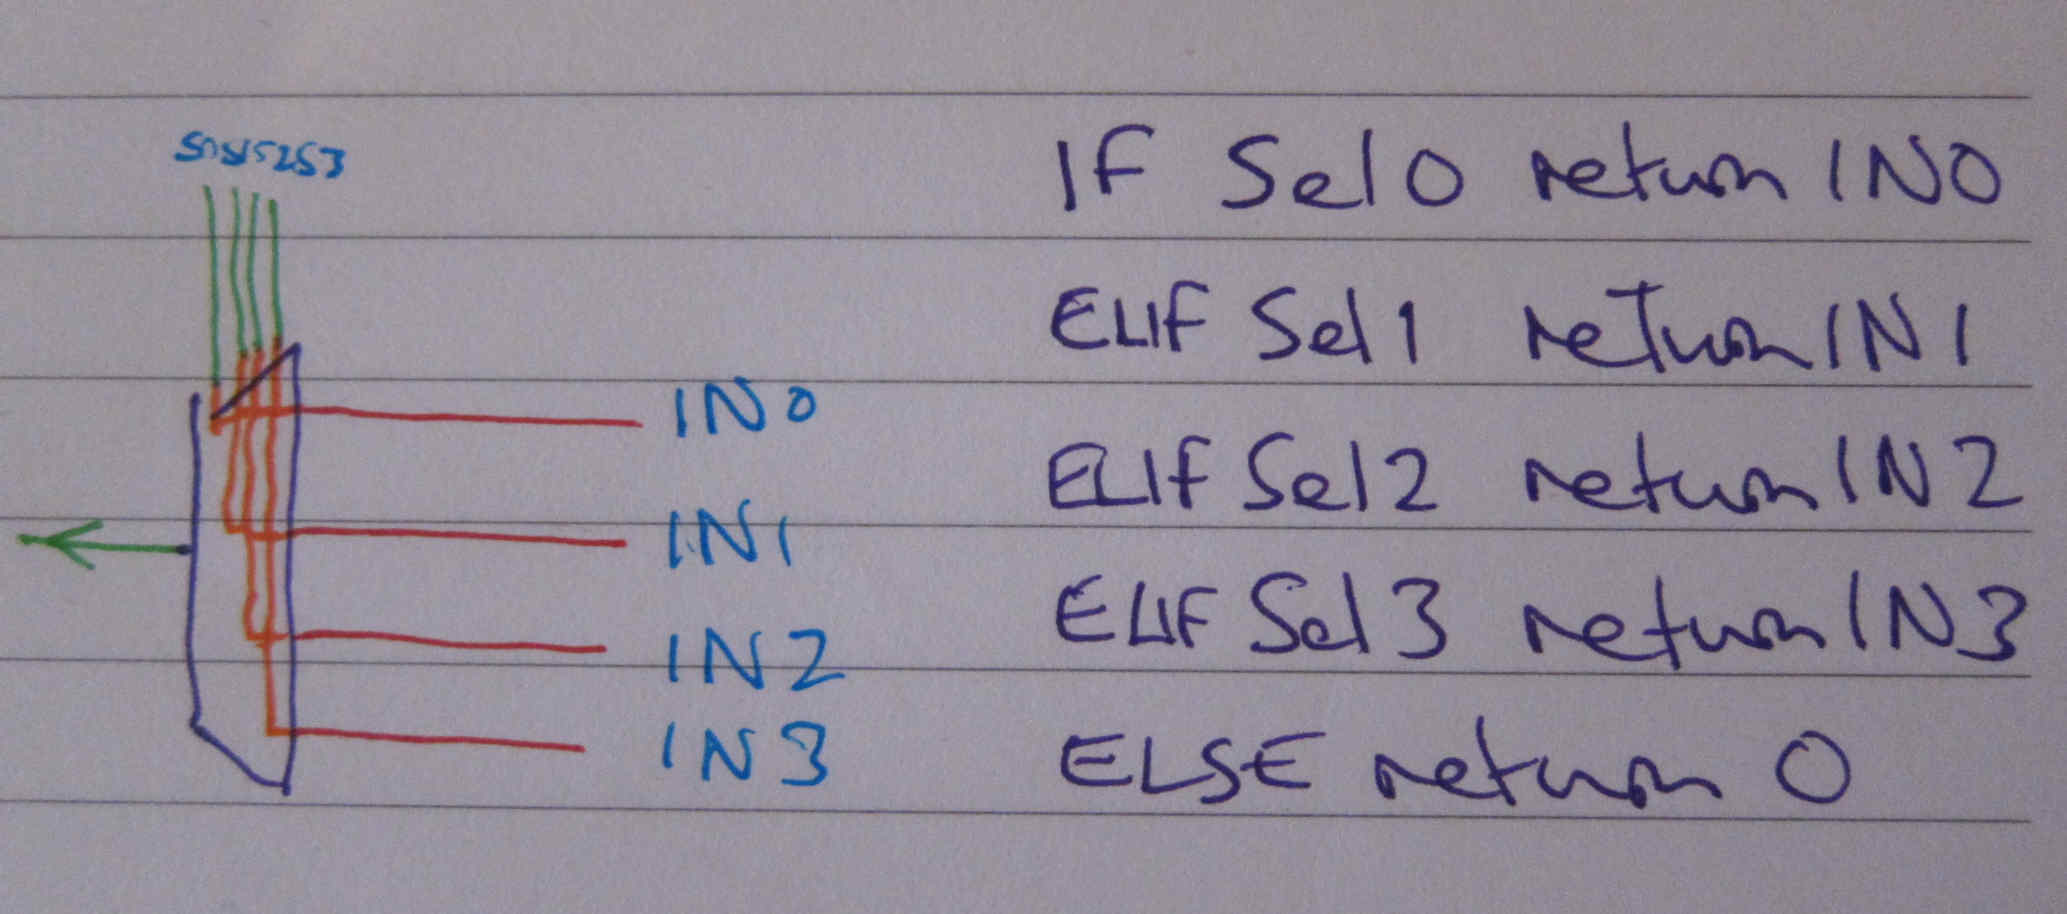 S0S1S2S3
IN0
IN1
IN2
IN3
IF Sel0 return IN0
ELIF Sel1 return IN1
ELIF Sel2 return IN2
ELIF Sel3 return IN3
ELSE return 0